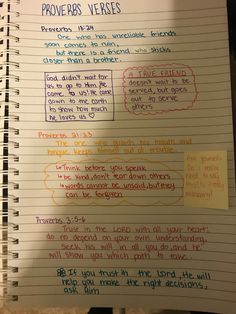 PROVERBS VERSES
Proverbs 18:24
One who has unreliable friends
soon comes to ruin,
but there is a friend who sticks
closer than a brother.
God didn't wait for
us to go to Him, He
came to us! He came
down to the earth
to show how much
he loves us ♡
A TRUE FRIEND
doesn't wait to be
served, but goes
out to serve
others
Proverbs 21:23
The one who guards his mouth and
tongue keeps himself out of trouble.
→Think before you speak
→be kind, don't tear down others
→words cannot be unsaid, but they
can be forgiven
Ask yourself:
Do I
need to say
this? Is it really
necessary?
Proverbs 3:5-6
Trust in the LORD with all your heart;
do no depend on your own understanding.
Seek his will in all you do, and He
will show you which path to take.
If you trust in the Lord, He will
help you make the right decisions,
ask Him